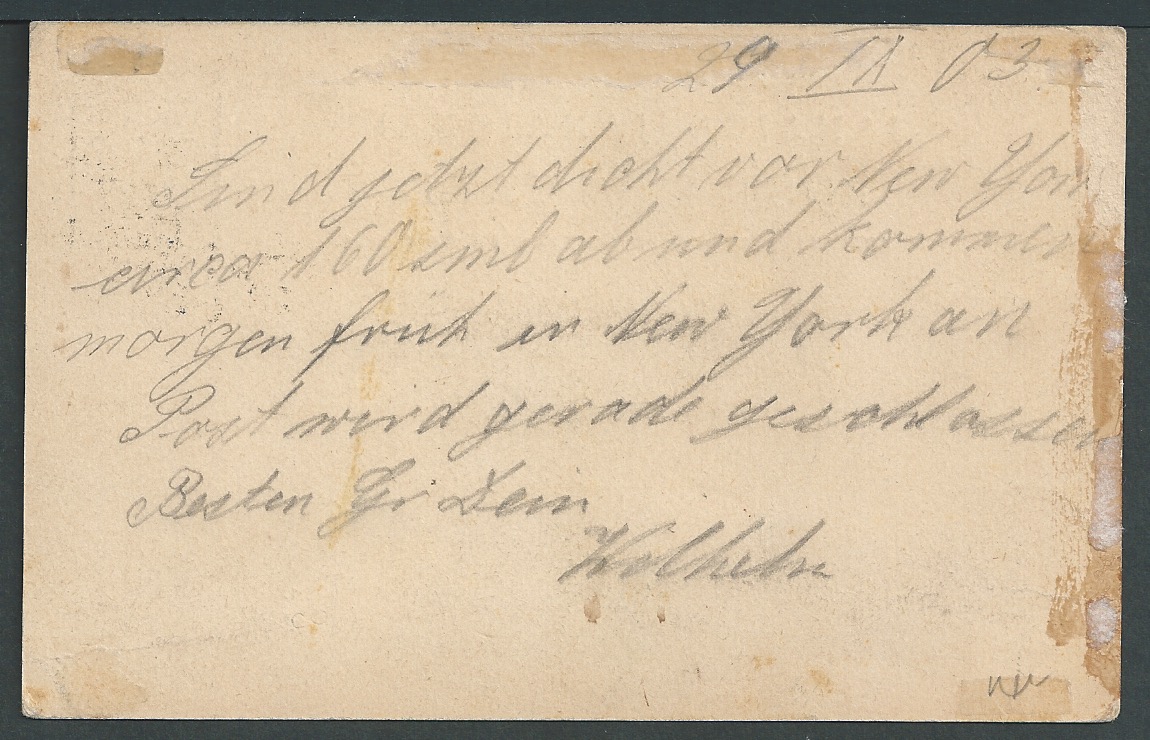 29 IX 03
Sind jetzt dicht vor New York
circa 160 sml ab und kommen
morgen früh in New York an
Post wird gerade geschlossen
Besten Gr Dein
Wilhelm